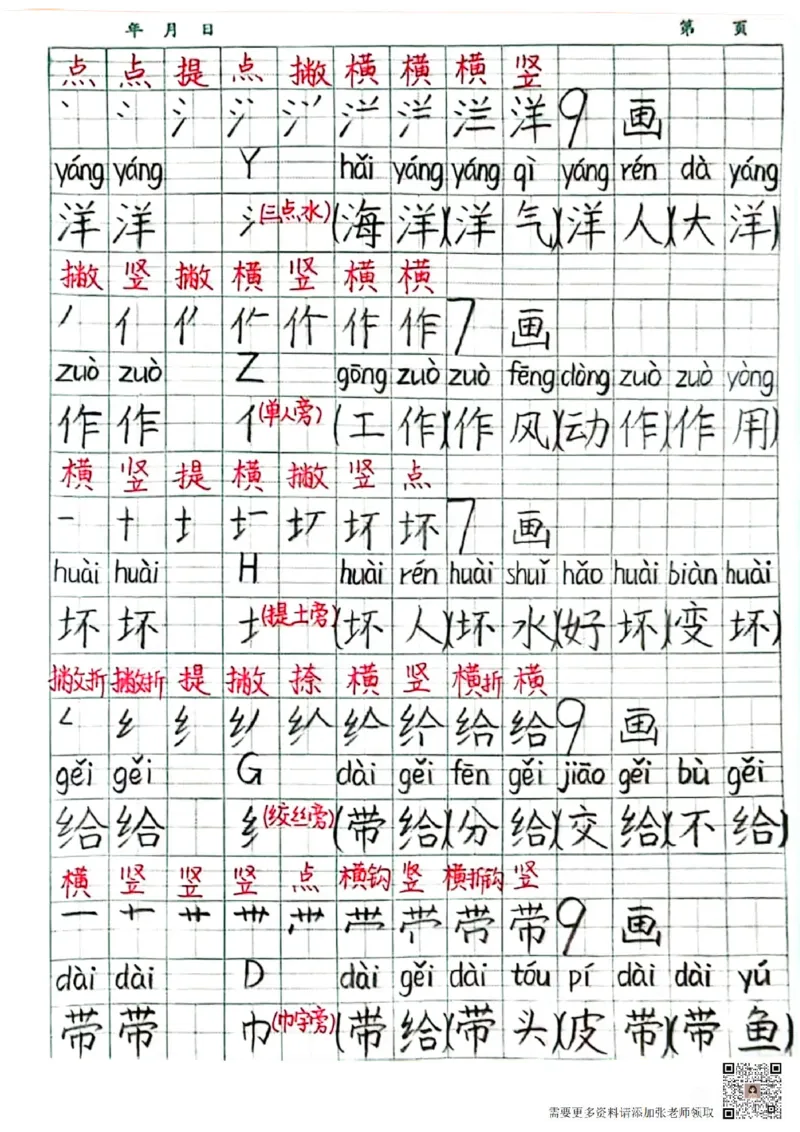 年 月 日 第 页
点 点 提 点 撇 横 横 横 竖
丶 冫 氵 洋 9 画
yáng yáng Y hǎi yáng yáng qì yáng rén dà yáng
洋 洋 氵(三点水) (海 洋)(洋 气)(洋 人)(大 洋)
撇 竖 撇 横 竖 横 横
丿 亻 作 作 7 画
zuò zuò Z gōng zuò zuò fēng dòng zuò zuò yòng
作 作 亻(单人旁) (工 作)(作 风)(动 作)(作 用)
横 竖 提 横 撇 竖 点
一 十 坏 坏 7 画
huài huài H huài rén huài shuǐ hǎo huài biàn huài
坏 坏 土(提土旁) (坏 人)(坏 水)(好 坏)(变 坏)
撇折 撇折 提 撇 捺 横 竖 横折 横
纟 给 给 9 画
gěi gěi G dài gěi fēn gěi jiāo gěi bù gěi
给 给 纟(绞丝旁) (带 给)(分 给)(交 给)(不 给)
横 竖 竖 竖 点 横钩 竖 横折钩 竖
一 十 卄 卅 带 9 画
dài dài D dài gěi dài tóu pí dài dài yú
带 带 巾(巾字旁) (带 给)(带 头)(皮 带)(带 鱼)
需要更多资料请添加张老师领取